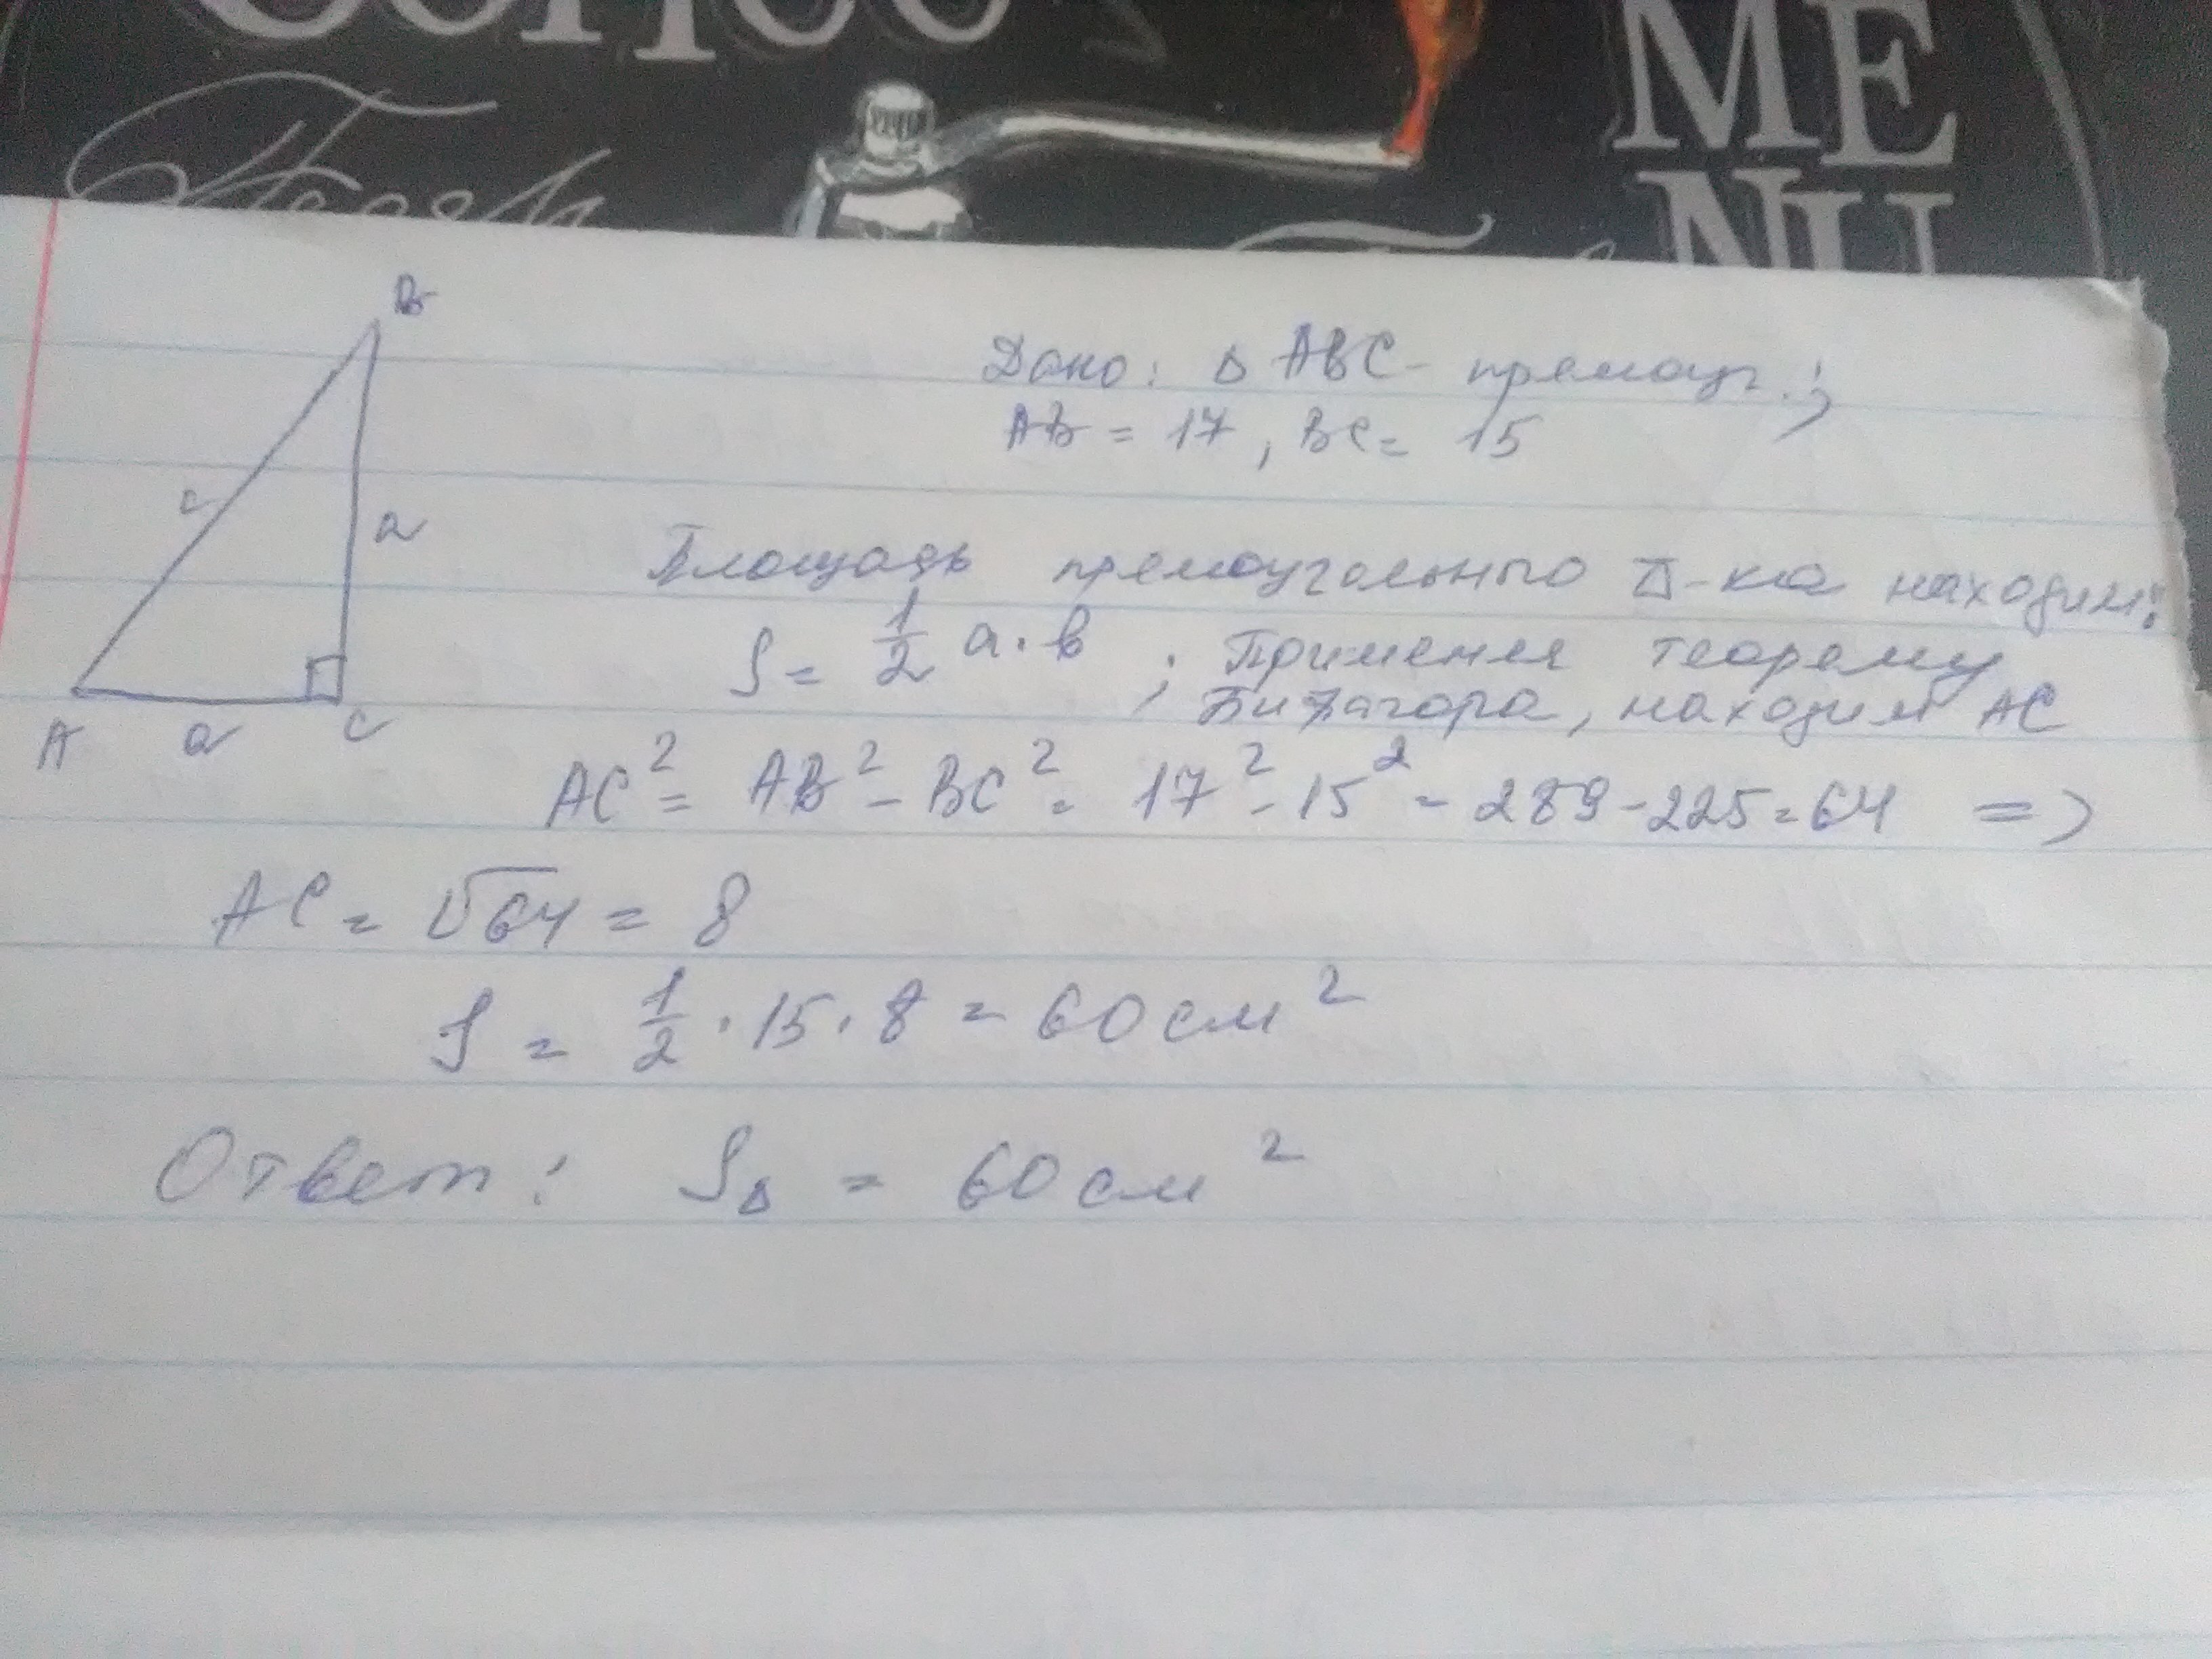 ME
NU
B
c
a
A
a
C
Дано: Δ ABC - прямоуг.;
AB = 17, BC = 15
Площадь прямоугольного Δ-ка находим:
S = 1/2 a · b ; Применяя теорему
Пифагора, находим AC
AC² = AB² - BC² = 17² - 15² = 289 - 225 = 64 =>
AC = √64 = 8
S = 1/2 · 15 · 8 = 60 см²
Ответ: SΔ = 60 см²